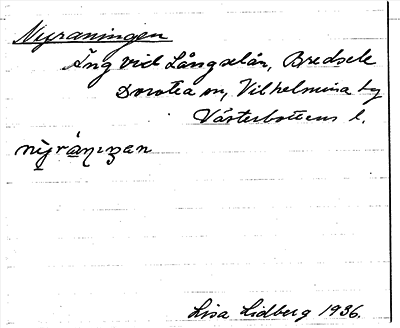 Nyraningen
Äng vid Långselån, Bredsele
Dorotea sn, Vilhelmina tg
Västerbottens l.
Lisa Lidberg 1936.